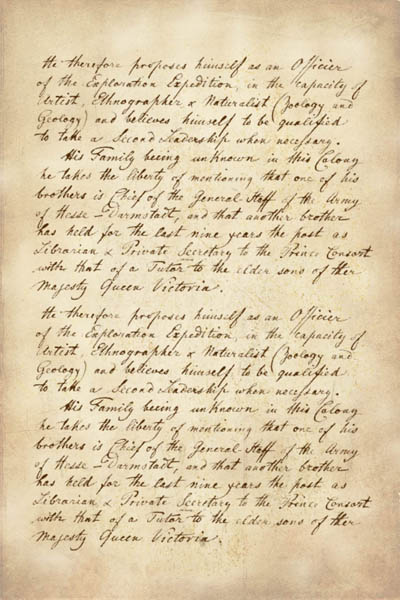 He therefore proposes himself as an Officier
of the Exploration Expedition, in the capacity of
Artist, Ethnographer & Naturalist (Zoology and
Geology) and believes himself to be qualified
to take a Second Leadership when necessary.
His Family being unknown in this Colony
he takes the liberty of mentioning that one of his
brothers is Chief of the General Staff of the Army
of Hesse-Darmstadt, and that another brother
has held for the last nine years the post as
Librarian & Private Secretary to the Prince Consort
with that of a Tutor to the elder sons of Her
Majesty Queen Victoria.
He therefore proposes himself as an Officier
of the Exploration Expedition, in the capacity of
Artist, Ethnographer & Naturalist (Zoology and
Geology) and believes himself to be qualified
to take a Second Leadership when necessary.
His Family being unknown in this Colony
he takes the liberty of mentioning that one of his
brothers is Chief of the General Staff of the Army
of Hesse-Darmstadt, and that another brother
has held for the last nine years the post as
Librarian & Private Secretary to the Prince Consort
with that of a Tutor to the elder sons of Her
Majesty Queen Victoria.